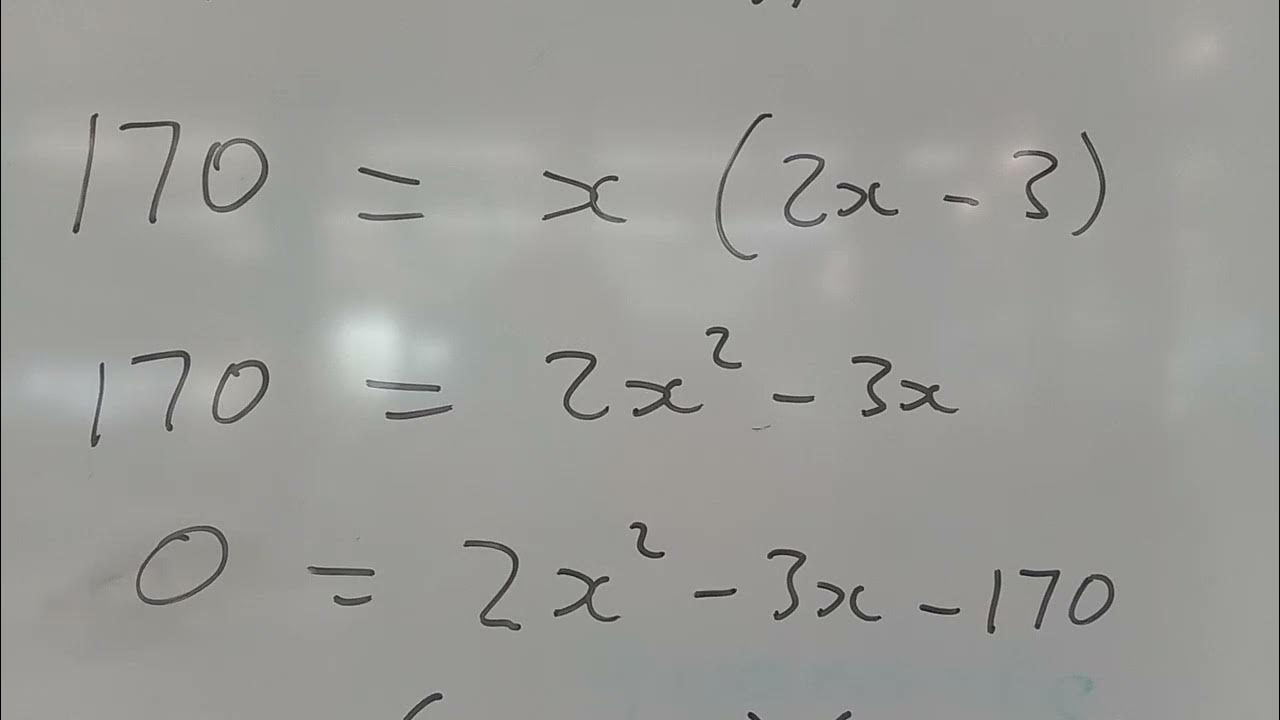 170 = x (2x - 3)
170 = 2x² - 3x
0 = 2x² - 3x - 170